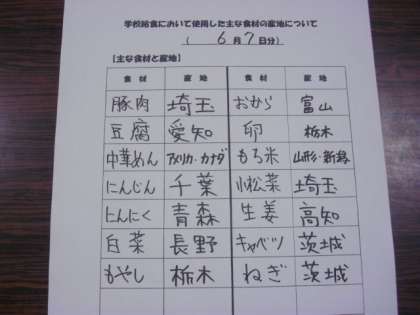 学校給食において使用した主な食材の産地について
( 6月7日分)
【主な食材と産地】
食材 産地 食材 産地
豚肉 埼玉 おから 富山
豆腐 愛知 卵 栃木
中華めん アメリカ・カナダ もち米 山形・新潟
にんじん 千葉 小松菜 埼玉
にんにく 青森 生姜 高知
白菜 長野 キャベツ 茨城
もやし 栃木 ねぎ 茨城